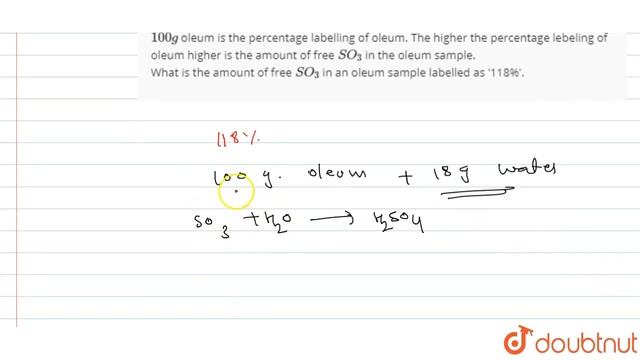 100g oleum is the percentage labelling of oleum. The higher the percentage lebeling of
oleum higher is the amount of free SO₃ in the oleum sample.
What is the amount of free SO₃ in an oleum sample labelled as '118%'.
118%
100 g. oleum + 18g water
SO₃ + H₂O → H₂SO₄
doubtnut